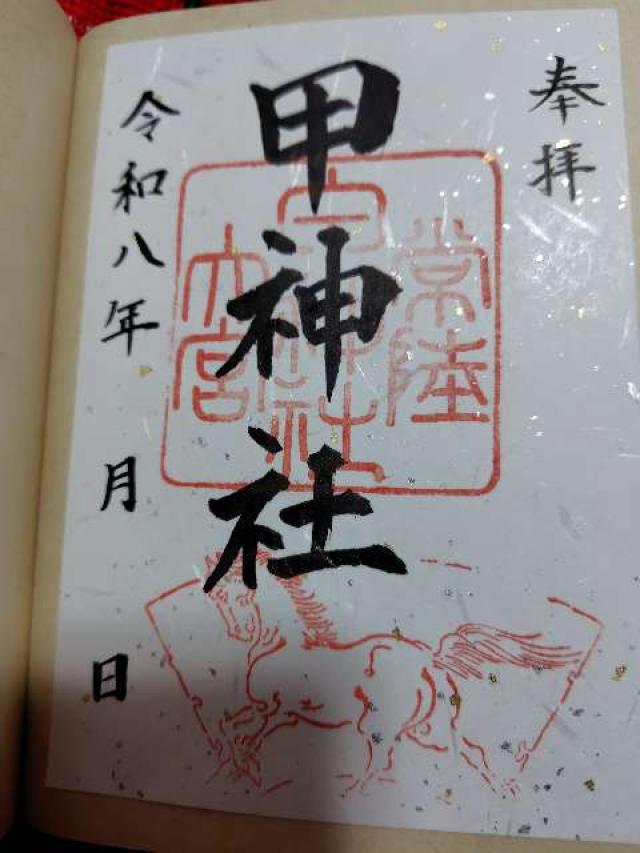 奉拝
甲神社
常陸
甲神社
大宮
令和八年 月 日